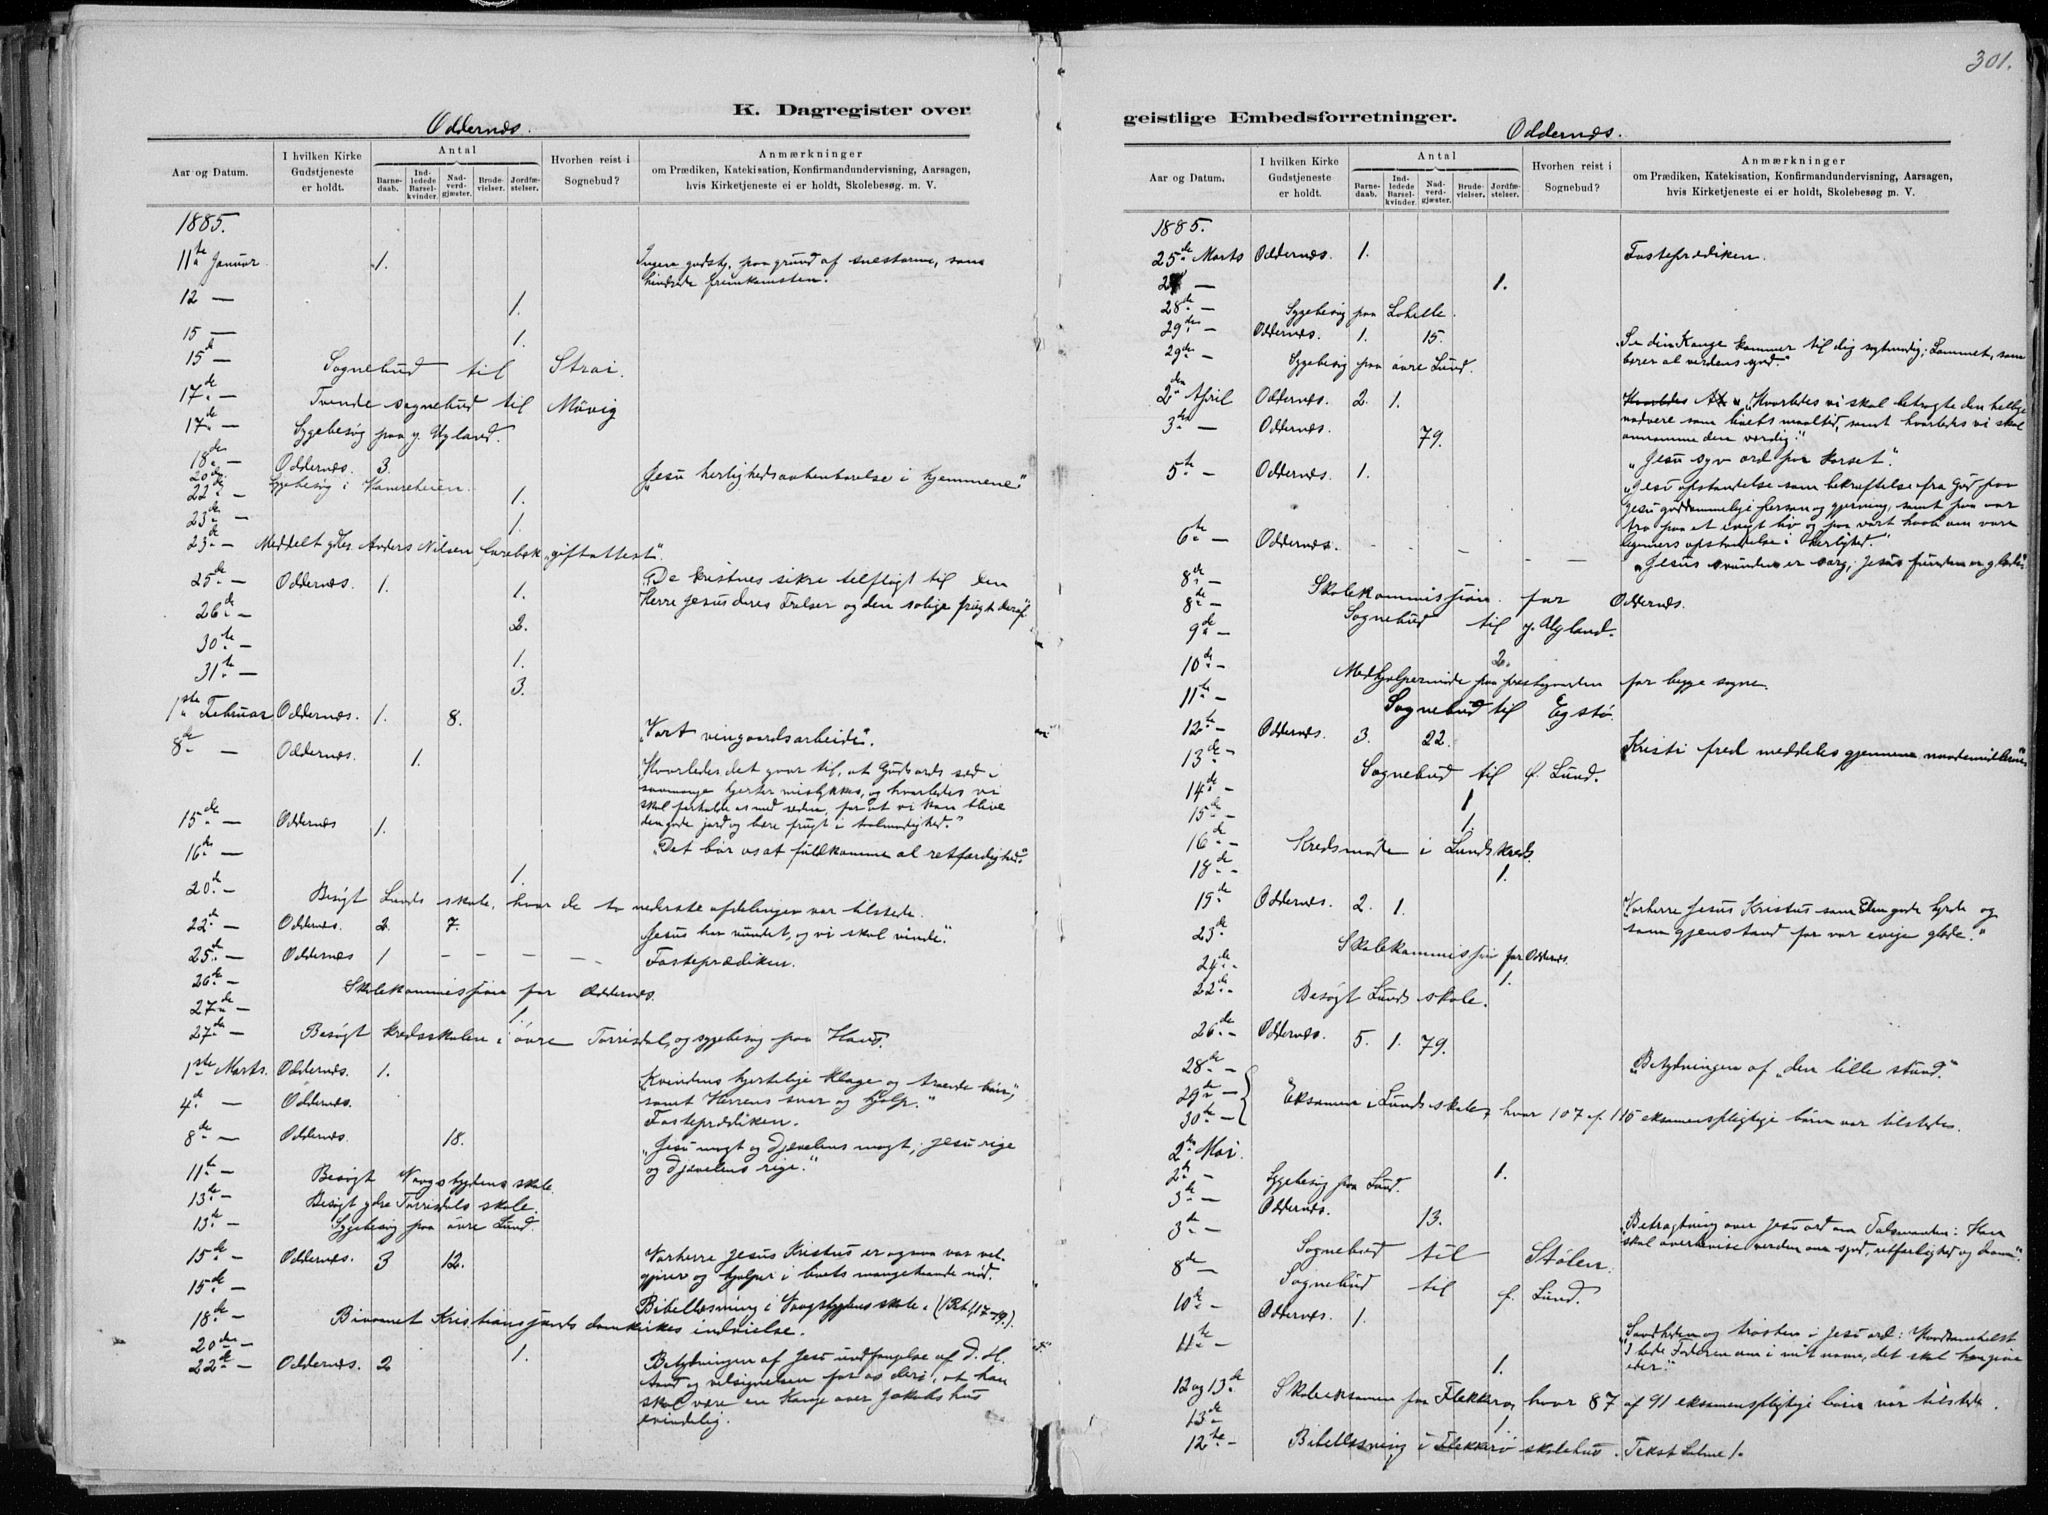 301.
K. Dagregister over
Oddernæs.
Aar og Datum.
I hvilken Kirke Gudstjeneste er holdt.
Antal
Barnedaab.
Indledede Barselkvinder.
Nadverdgjæster.
Brudevielser.
Jordfæstelser.
Hvorhen reist i Sognebud?
Anmærkninger
om Prædiken, Katekisation, Konfirmandundervisning, Aarsagen,
hvis Kirketjeneste ei er holdt, Skolebesøg m. V.
1885.
11te Januar 1. Ingen gudstj. paa grund af snestorm, som
hindrede fremkomsten.
12 — 1.
15 — 1.
15de — Sognebud til Strai.
17de — Tvende sognebud til Møvig
17de — Sygebesøg paa y. Ugland.
18de — Oddernæs. 3. „Jesu herlighedsaabenbarelse i hjemmene"
20de Sygebesøg i
22de — 1.
23de — 1.
23de — Meddelt Anders Nilsen „giftattest".
25de — Oddernæs. 1. 1. „De kristnes sikre tilflugt til den
Herre Jesus deres Frelser og den salige frugt deraf"
26de — 2.
30te — 1.
31te — 3.
1ste Februar Oddernæs. 1. 8. „Vort vingaardsarbeide".
8de — Oddernæs. 1. Hvorledes det gaar til, at Guds ords sæd i
saamange hjerter mislykkes, og hvorledes vi
skal forholde os med sæden, for at vi kan blive
den gode jord og bære frugt i taalmodighed."
15de — Oddernæs 1. „Det bør os at fuldkomme al retfærdighed."
16de — 1.
20de — Besøgt Lunds skole, hvor de to nederste afdelinger var tilstede.
22de — Oddernæs. 2. 7. „Jesus har vundet, og vi skal vinde."
25de — Oddernæs 1 — — — — Fasteprædiken.
26de — Skolekommission for Oddernæs.
27de — 1.
27de — Besøgt kredsskolen i øvre Torrisdal, og sygebesøg paa
1ste Marts. Oddernæs. 1. „Kvindens hjertelige klage og troende bøn,
samt Herrens svar og hjælp."
4de — Oddernæs. Fasteprædiken.
8de — Oddernæs. 18. „Jesu magt og djævelens magt; Jesu rige
og djævelens rige."
11te — Besøgt Vaagsbygdens skole.
13de — Besøgt ydre Torrisdals skole.
13de — Sygebesøg paa øvre Lund.
15de — Oddernæs. 3 12. Vorherre Jesus Kristus er ogsaa vor velgjører
og hjælper i livets mangehaande nød.
15de — Bibellæsning i Vaagsbygdens skole.
18de — Bivaanet Kristiansands domkirkes indvielse.
20de — 1.
22de — Oddernæs. 2 Betydningen af Jesu undfangelse af d. H.
Aand og velsignelsen for os deri, at han
skal være en Konge over Jakobs hus
evindelig.
geistlige Embedsforretninger.
Oddernæs.
Aar og Datum.
I hvilken Kirke Gudstjeneste er holdt.
Antal
Barnedaab.
Indledede Barselkvinder.
Nadverdgjæster.
Brudevielser.
Jordfæstelser.
Hvorhen reist i Sognebud?
Anmærkninger
om Prædiken, Katekisation, Konfirmandundervisning, Aarsagen,
hvis Kirketjeneste ei er holdt, Skolebesøg m. V.
1885.
25de Marts Oddernæs. 1. Fasteprædiken.
— 1.
28de — Sygebesøg paa
29de — Oddernæs. 1. 15. „Se din Konge kommer til dig sagtmodig; Lammet, som
bærer al verdens synd."
29de — Sygebesøg paa øvre Lund.
2den April Oddernæs. 2. 1. „Hvorledes vi skal betragte den hellige
nadvere som livets maaltid, samt hvorledes vi skal
annamme den værdig."
3die — Oddernæs. 79. „Jesu syv ord paa korset."
5te — Oddernæs. 1. „Jesu opstandelse som bekræftelse fra Gud paa
Jesu guddommelige person og gjerning, samt paa vor
tro paa et evigt liv og paa vort haab om vore
legemers opstandelse i herlighed."
6te — Oddernæs. — — — — — „Jesus svunden er sorg; Jesus funden er glæde."
8de — Skolekommission for Oddernæs.
8de — Sognebud til y. Ugland.
9de — 2.
10de — Medhjælpermøde paa prestegaarden for begge sogne.
11te — Sognebud til Egstø.
12te — Oddernæs. 3. 22. Kristi fred meddeles gjennem naademidlerne"
13de — Sognebud til f. Lund.
14de — 1
15de — 1.
16de — Kredsmøde i Lunds kreds.
18de — 1.
19de Oddernæs. 2. 1. Vorherre Jesus Kristus som Den gode hyrde og
som gjenstand for vor evige glæde."
23de Skolekommission for Oddernæs.
24de — 1.
22de — Besøgt Lunds skole.
26de — Oddernæs. 5. 1. 79. „Betydningen af „den lille stund"."
28de —
29de — Eksamen i Lunds skole, hvor 107 af 115 eksamenspligtige børn var tilstede.
30te —
2den Mai. 1.
2den — Sygebesøg paa Lund.
3die — Oddernæs. 13. „Betragtning over Jesu ord om Talsmanden: Han
skal overbevise verden om synd, retfærdighed og dom."
3die — Sognebud til Stølen.
8de — Sognebud til f. Lund.
10de — Oddernæs. 1. „Sandheden og trøsten i Jesu ord: Hvadsomhelst
I bede Faderen om i mit navn, det skal han give
eder."
11te — 1.
12 og 13de Skoleeksamen paa Flekkerø, hvor 87 af 91 eksamenspligtige børn var tilstede.
13de — 1.
12te — Bibellæsning i Flekkerø skolehus. Tekst Salme 1.